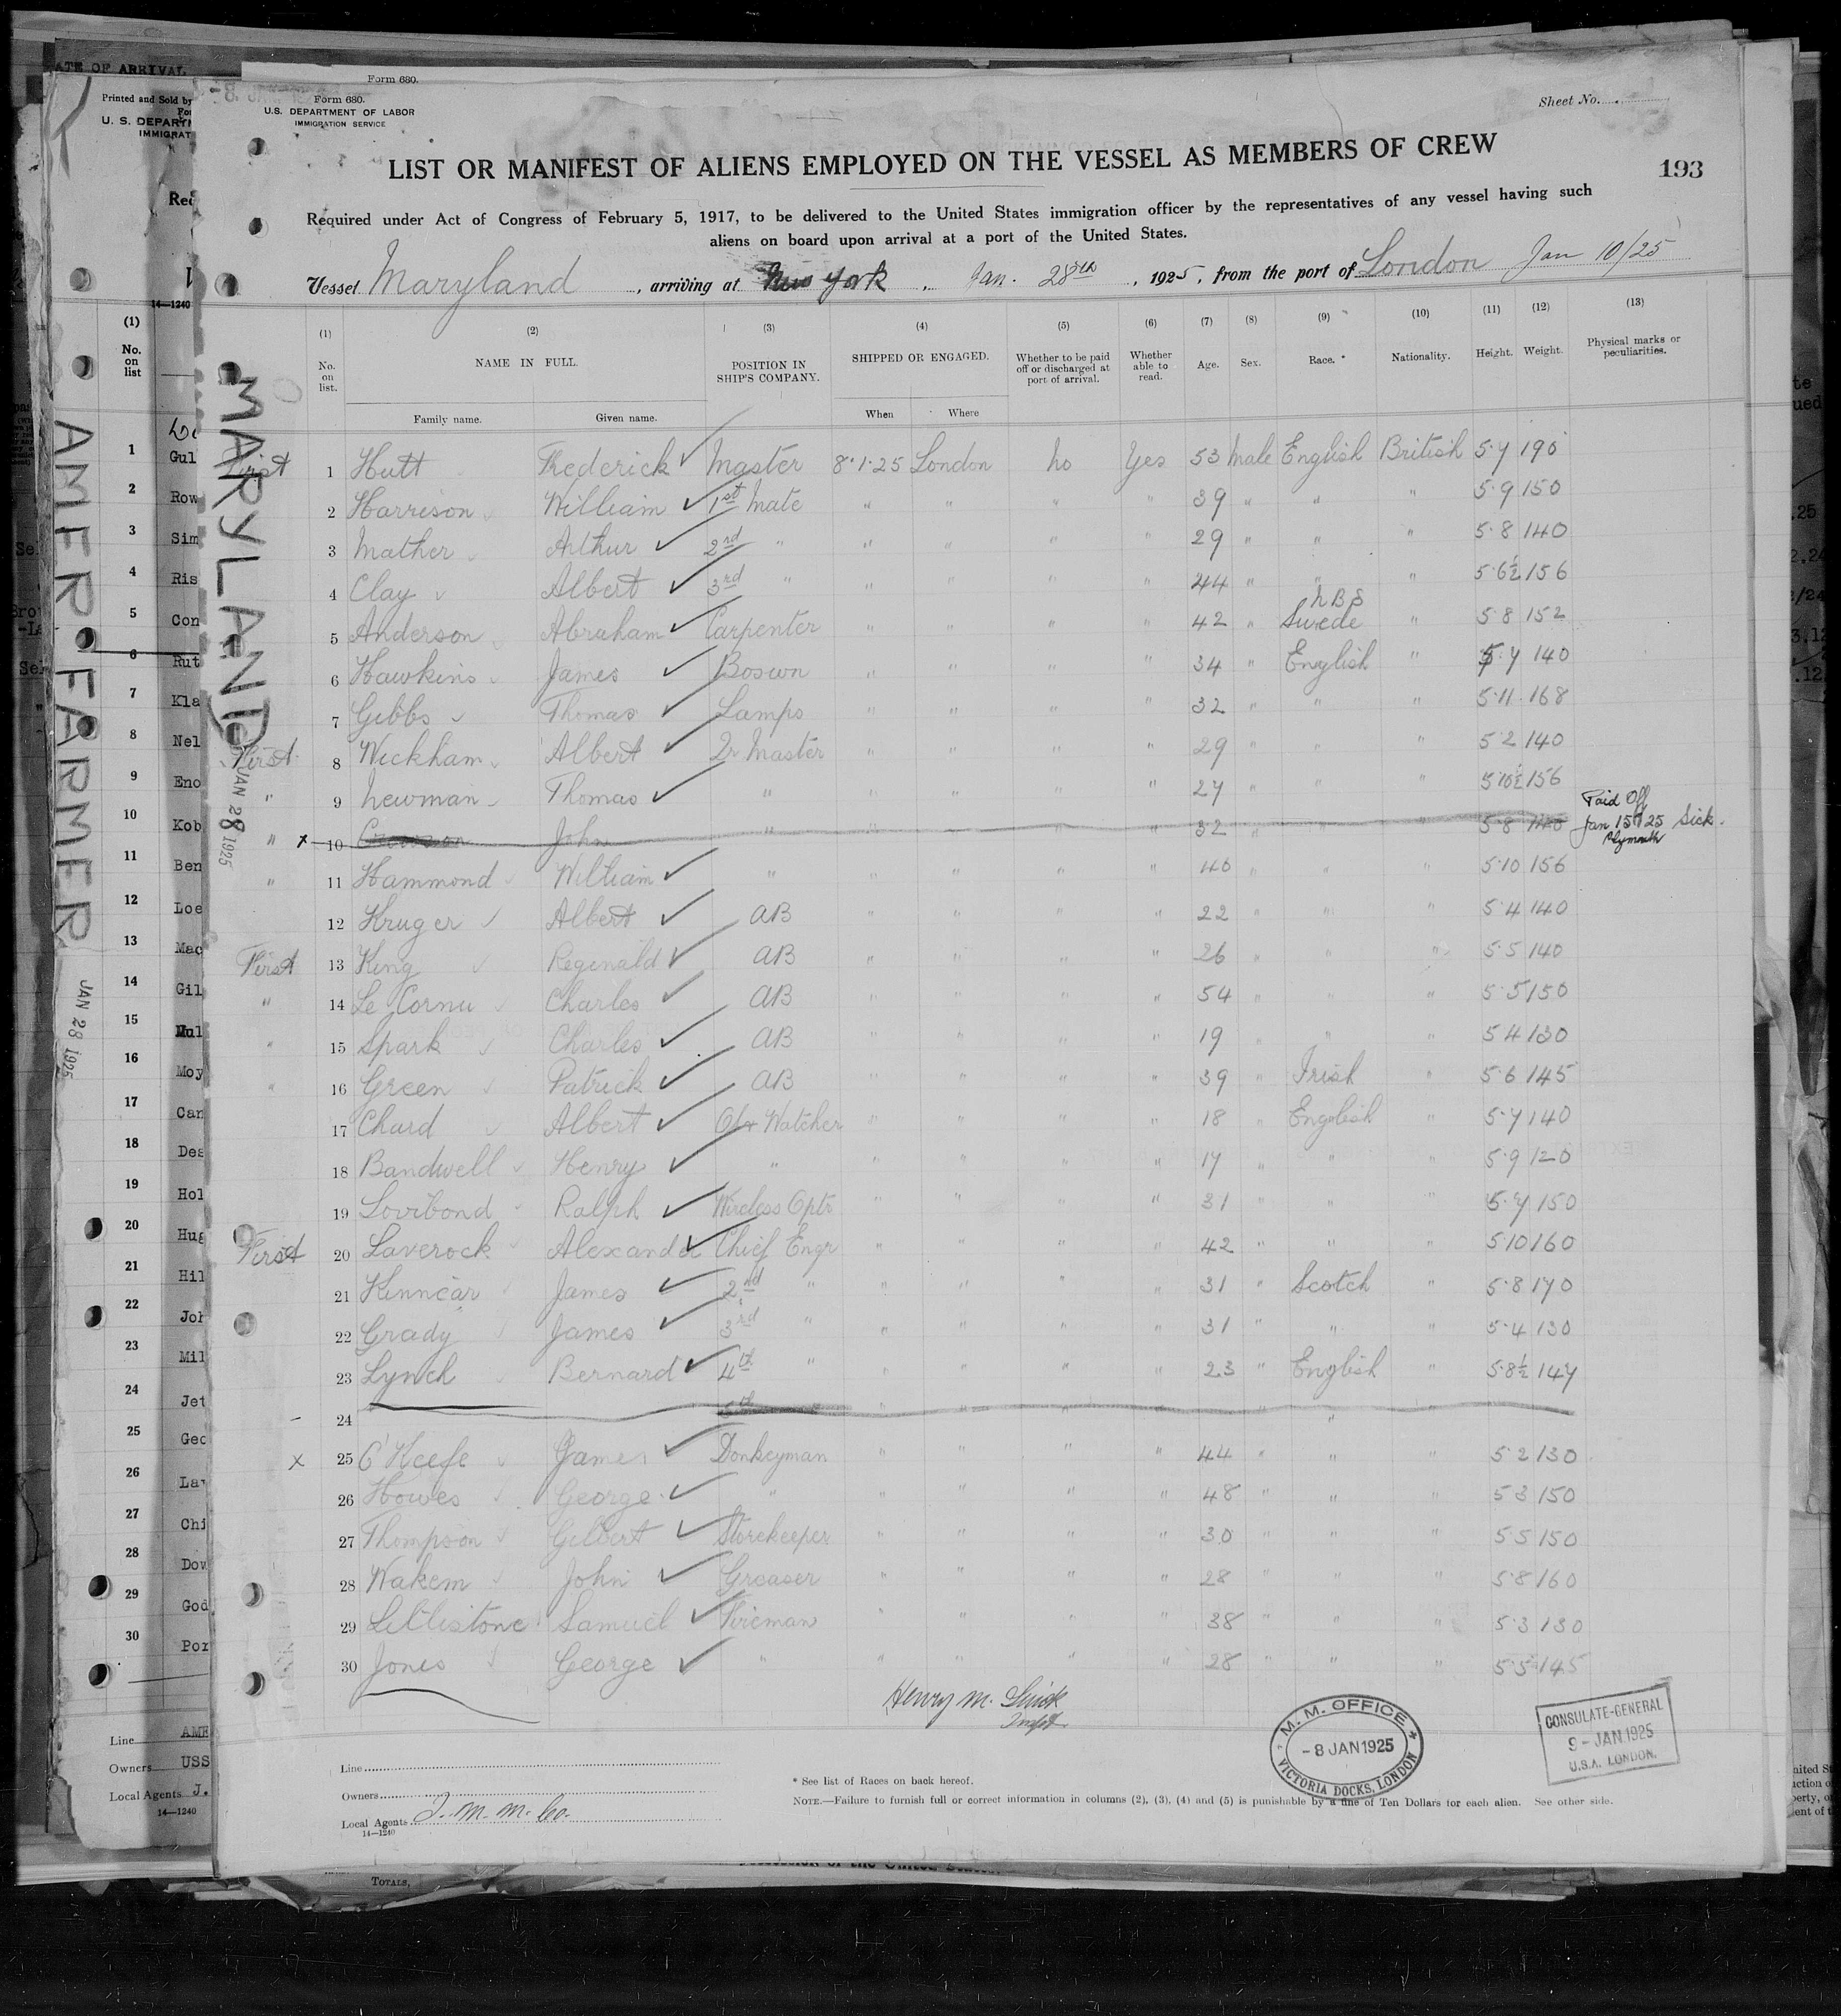 Form 680.
Form 680.
U.S. DEPARTMENT OF LABOR
IMMIGRATION SERVICE
Sheet No.
LIST OR MANIFEST OF ALIENS EMPLOYED ON THE VESSEL AS MEMBERS OF CREW
193
Required under Act of Congress of February 5, 1917, to be delivered to the United States immigration officer by the representatives of any vessel having such
aliens on board upon arrival at a port of the United States.
Vessel Maryland, arriving at New York, Jan. 28th, 1925, from the port of London Jan 10/25
(1) (2) (3) (4) (5) (6) (7) (8) (9) (10) (11) (12) (13)
No. on list. NAME IN FULL. POSITION IN SHIP'S COMPANY. SHIPPED OR ENGAGED. Whether to be paid off or discharged at port of arrival. Whether able to read. Age. Sex. Race.* Nationality. Height. Weight. Physical marks or peculiarities.
Family name. Given name. When Where
First 1 Hutt Frederick Master 8.1.25 London No Yes 53 Male English British 5.7 190
2 Harrison William 1st Mate " " " " 39 " " " 5.9 150
3 Mather Arthur 2nd " " " " " 29 " " " 5.8 140
4 Clay Albert 3rd " " " " " 44 " " " 5.6½ 156
NBS
5 Anderson Abraham Carpenter " " " " 42 " Swede " 5.8 152
6 Hawkins James Boswn " " " " 34 " English " 5.7 140
7 Gibbs Thomas Lamps " " " " 32 " " " 5.11 168
First 8 Wickham Albert Qr Master " " " " 29 " " " 5.2 140
" 9 Newman Thomas " " " " " 27 " " " 5.10½ 156
" x 10 John " " " " " 32 " " " 5.8 140 Paid Off Jan 15/25 Sick. Plymouth
" 11 Hammond William " " " " " 40 " " " 5.10 156
12 Kruger Albert AB " " " " 22 " " " 5.4 140
First 13 King Reginald AB " " " " 26 " " " 5.5 140
" 14 Le Cornu Charles AB " " " " 54 " " " 5.5 150
" 15 Spark Charles AB " " " " 19 " " " 5.4 130
" 16 Green Patrick AB " " " " 39 " Irish " 5.6 145
17 Chard Albert Watcher " " " " 18 " English " 5.7 140
18 Bandwell Henry " " " " " 17 " " " 5.9 120
19 Lovibond Ralph Wireless Optr " " " " 31 " " " 5.7 150
First 20 Laverock Alexander Chief Engr " " " " 42 " " " 5.10 160
21 Kinnear James 2nd " " " " " 31 " Scotch " 5.8 170
22 Grady James 3rd " " " " " 31 " " " 5.4 130
23 Lynch Bernard 4th " " " " " 23 " English " 5.8½ 147
24 5th " " " " "
x 25 O'Keefe James Donkeyman " " " " 44 " " " 5.2 130
26 Howes George " " " " " 48 " " " 5.3 150
27 Thompson Gilbert Storekeeper " " " " 30 " " " 5.5 150
28 Wakem John Greaser " " " " 28 " " " 5.8 160
29 Littlistone Samuel Fireman " " " " 38 " " " 5.3 130
30 Jones George " " " " " 28 " " " 5.5 145
Henry M.
M. M. OFFICE
- 8 JAN 1925
VICTORIA DOCKS, LONDON
CONSULATE-GENERAL
9 - JAN. 1925
U.S.A. LONDON.
Line
Owners
Local Agents I. M. M. Co.
14—1240
* See list of Races on back hereof.
NOTE.—Failure to furnish full or correct information in columns (2), (3), (4) and (5) is punishable by a fine of Ten Dollars for each alien. See other side.
MARYLAND
JAN 28 1925
ATE OF ARRIVAL
Printed and Sold by
U. S. DEPARTM
IMMIGRAT
14—1240
(1)
No.
on
list
1 Gul
2 Row
3 Sim
4 Ris
5 Con
6 Rut
7 Kla
8 Nel
9 Eno
10 Kob
11 Ben
12 Loe
13 Mac
14 Gil
15 Mul
16 Moy
17 Can
18 Des
19 Hol
20 Hug
21 Hil
22 Joh
23 Mil
24 Jet
25 Geo
26 Law
27 Chi
28 Dow
29 God
30 Por
Line AME
Owners USS
Local Agents J.
14—1240
AMER. FARMER
JAN 28 1925
TOTALS,